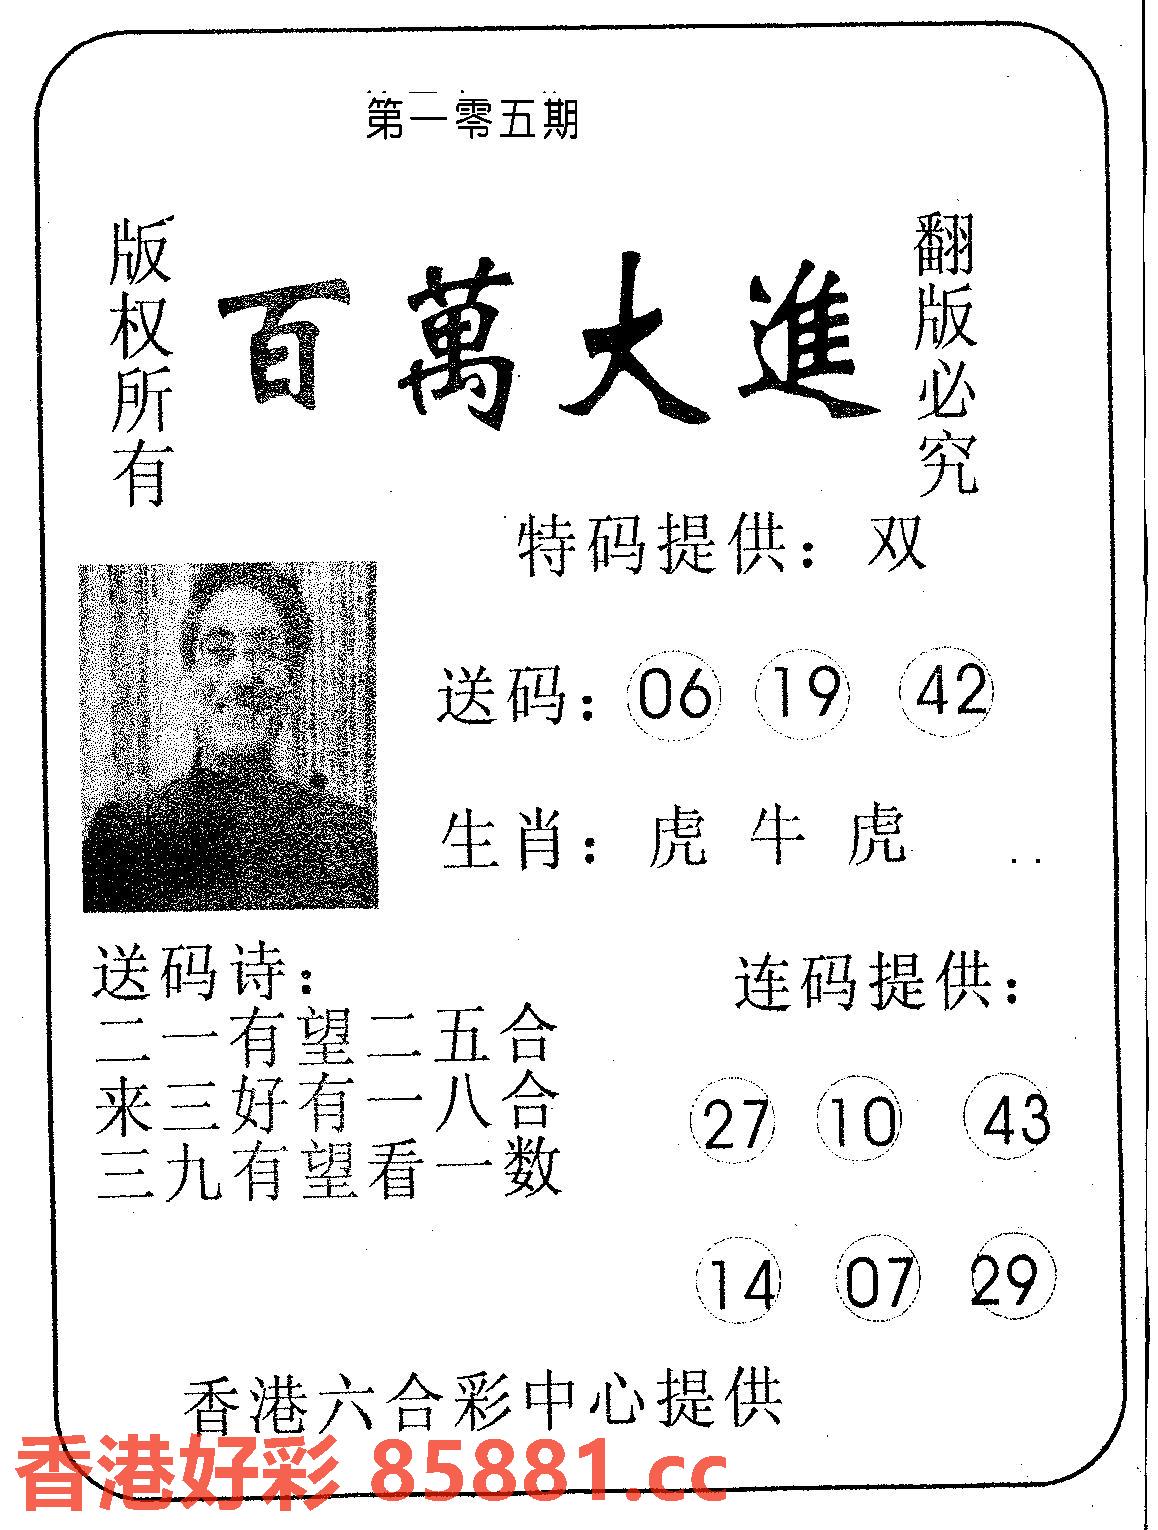 第一零五期
版权所有
百萬大進
翻版必究
特码提供：双
送码：06 19 42
生肖：虎 牛 虎
送码诗：
二一有望二五合
来三好有一八合
三九有望看一数
连码提供：
27 10 43
14 07 29
香港六合彩中心提供
香港好彩 85881.cc